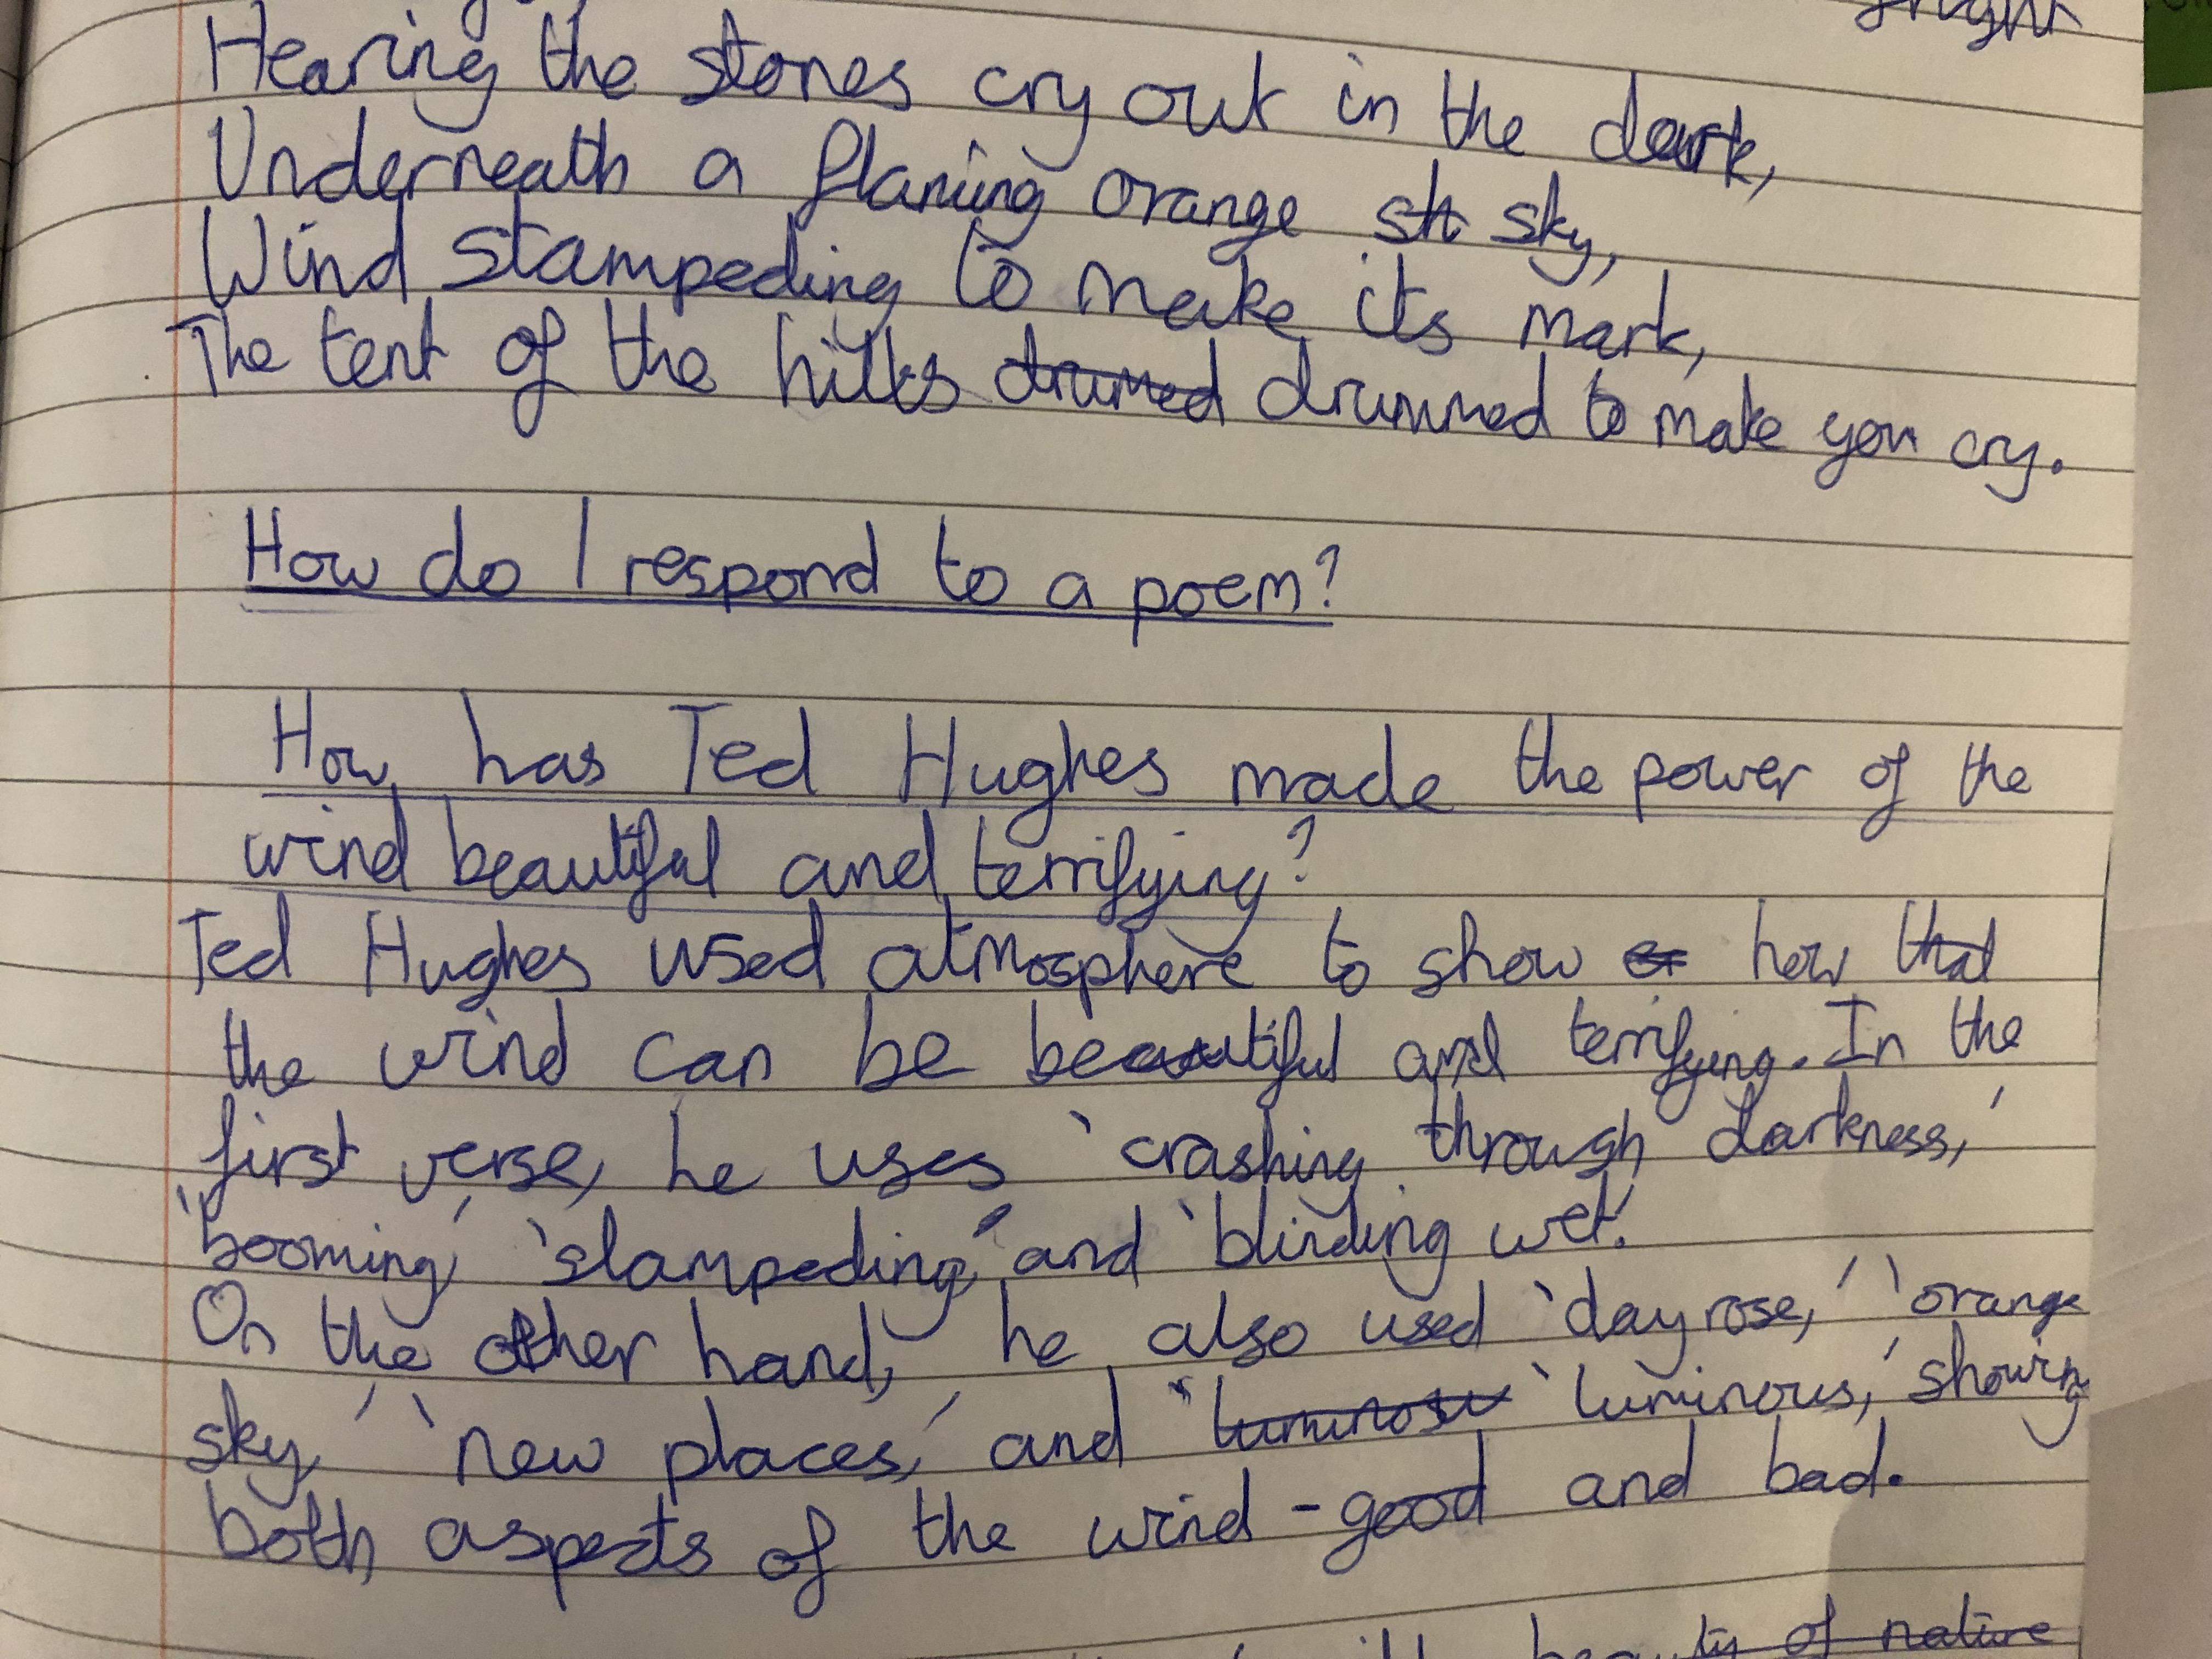 Hearing the stones cry out in the dark,
Underneath a flaming orange sky,
Wind stampeding to make its mark,
The tent of the hills drummed drummed to make you cry.
How do I respond to a poem?
How has Ted Hughes made the power of the
wind beautiful and terrifying?
Ted Hughes used atmosphere to show how that
the wind can be beautiful and terrifying. In the
first verse, he uses 'crashing through darkness,'
'booming,' 'stampeding' and 'blinding wet.'
On the other hand, he also used 'day rose,' 'orange
sky,' 'new places,' and 'luminous,' showing
both aspects of the wind - good and bad.
beauty of nature